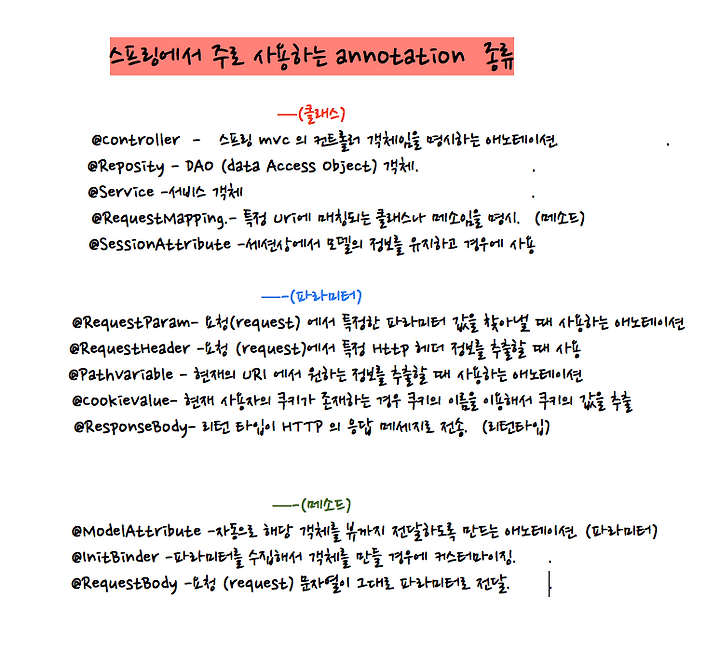 스프링에서 주로 사용하는 annotation 종류
—-(클래스)
@controller - 스프링 mvc 의 컨트롤러 객체임을 명시하는 애노테이션.
@Reposity - DAO (data Access Object) 객체.
@Service -서비스 객체
@RequestMapping.- 특정 uri에 매칭되는 클래스나 메소임을 명시. (메소드)
@SessionAttribute -세션상에서 모델의 정보를 유지하고 경우에 사용
—-(파라미터)
@RequestParam- 요청(request) 에서 특정한 파라미터 값을 찾아낼 때 사용하는 애노테이션
@RequestHeader -요청 (request)에서 특정 Http 헤더 정보를 추출할 때 사용
@Pathvariable - 현재의 URI 에서 원하는 정보를 추출할 때 사용하는 애노테이션
@cookievalue- 현재 사용자의 쿠키가 존재하는 경우 쿠키의 이름을 이용해서 쿠키의 값을 추출
@ResponseBody- 리턴 타입이 HTTP 의 응답 메세지로 전송. (리턴타입)
—-(메소드)
@ModelAttribute -자동으로 해당 객체를 뷰까지 전달하도록 만드는 애노테이션 (파라미터)
@InitBinder -파라미터를 수집해서 객체를 만들 경우에 커스터마이징.
@RequestBody -요청 (request) 문자열이 그대로 파라미터로 전달.